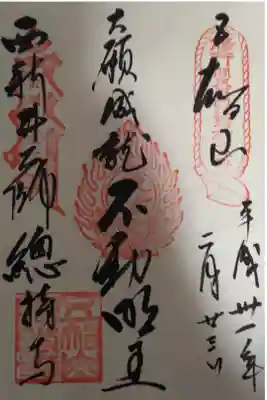 五智山
平成卅一年
二月廿三日
大願成就 不動明王
西新井大師 總持寺